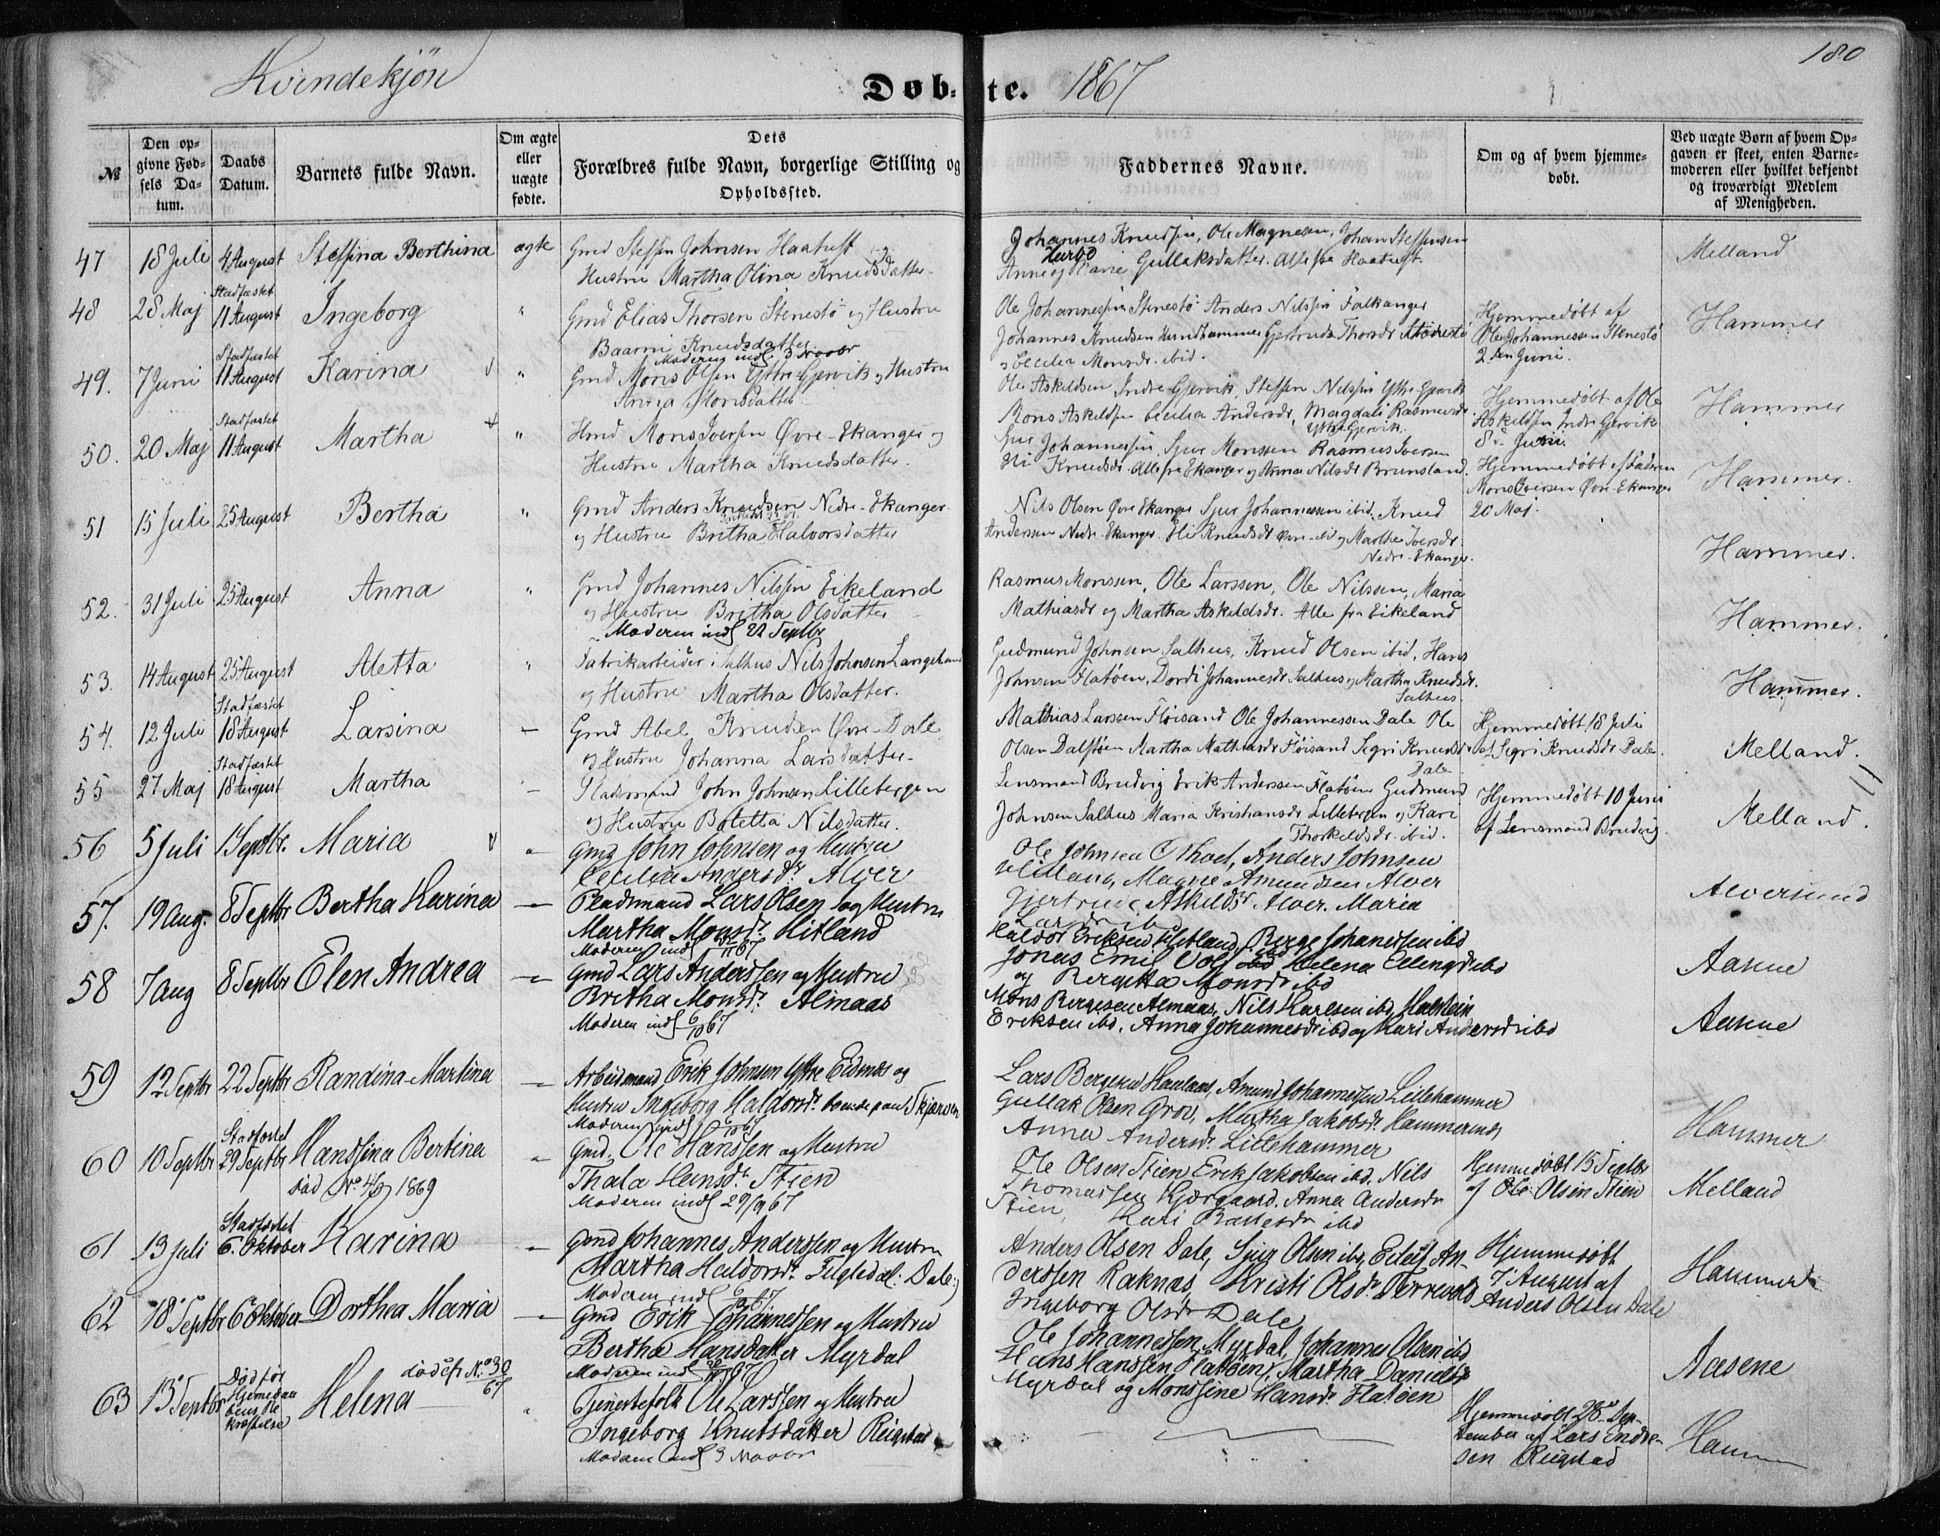 180
Kvindekjön
Døb-te. 1867
№
Den opgivne Fødsels Datum.
Daabs Datum.
Barnets fulde Navn.
Om ægte eller uægte fødte.
Dets Forældres fulde Navn, borgerlige Stilling og Opholdssted.
Faddernes Navne.
Om og af hvem hjemmedøbt.
Ved uægte Børn af hvem Opgaven er skeet, enten Barnemoderen eller hvilket bekjendt og troværdigt Medlem af Menigheden.
47 18 Juli 4 August Steffina Berthina ægte Gmd Steffen Johnsen Haatuft
Hustru Martha Olina Knudsdatter
Johannes Knudsen, Ole Magnesen, Johan Steffensen
Anne og Marie Gullaksdatter. Alle fra Haatuft
Melland
48 28 Maj Stadfæstet 11 August Ingeborg " Gmd Elias Thorsen Stenestö og Hustru
Baarni Knudsdatter
Moderen indl 3 Novbr
Ole Johannessen Stenestö Anders Nilssen Falkanger
Johannes Knudsen Hundhammer Gjertrud Thorsdr Stenestö
og Cecilia Monsdr. ibid.
Hjemmedøbt af
Ole Johannessen Stenestö
2den Juni.
Hammer
49. 7 Juni Stadfæstet 11 August Karina " Gmd Mons Olsen Ytre-Gjervik og Hustru
Anna Monsdatter
Ole Askildsen Indre Gjervik, Steffen Nilssen Ytre Gjervik
Mons Askildsen Cecilia Andersdr, Magdali Rasmusdr.
Ytre Gjervik.
Hjemmedøbt af Ole
Askildsen Indre Gjervik
8de Juni.
Hammer
50. 20 Maj Stadfæstet 11 August Martha " Hmd Mons Iversen Øvre-Ekanger og
Hustru Martha Knudsdatter.
Johannessen, Sjur Monssen Rasmus Iversen
Knudsdr. Alle fra Ekanger og Anna Nilsdr Brunsland.
Hjemmedøbt af Faderen
Mons Iversen Øvre-Ekanger
20 Maj.
Hammer.
51 15 Juli 25 August Bertha " Gmd Anders Knudsen Nedre-Ekanger
og Hustru Britha Halvorsdatter
Nils Olsen Øvre Ekanger Sjur Johannessen ibid. Knud
Andersen Nedre-Ekanger Eli Knudsdr Øvre-ibid og Marthe Iversdr.
Nedre-Ekanger.
Hammer.
52. 31 Juli 25 August Anna " Gmd Johannes Nilssen Eikeland
og Hustru Britha Olsdatter
Moderen indl 22 Septbr
Rasmus Monssen, Ole Larssen, Ole Nilssen, Maria
Mathiasdr og Martha Askildsdr. Alle fra Eikeland
Hammer.
53. 14 August 25 August Aletta " Fabrikarbeider i Salhus Nils Johnsen Langeland
og Hustru Martha Olsdatter.
Gudmund Johnsen Salhus, Knud Olsen ibid, Hans
Johnsen Flatöen, Dordi Johannesdr Salhus og Martha Knudsdr.
Salhus.
Hammer.
54. 12 Juli Stadfæstet 18 August Larsina — Gmd Abel Knudsen Øvre-Dale
og Hustru Johanna Larsdatter
Mathias Larssen Höisand Ole Johannessen Dale Ole
Olsen Dalstöen Martha Mathiasdr Höisand Segri Knudsdr
Dale
Hjemmedøbt 18 Juli
af Segri Knudsdr Dale.
Melland.
55 27 Maj Stadfæstet 18 August Martha — Pladsmand John Johnsen Lillebergen
og Hustru Boletta Nilsdatter.
Lensmand Brudvig Erik Anderssen Flatöen Gudmund
Johnsen Salhus Maria Kristiansdr Lillebergen og Kari
Thorkeldsdr. ibid.
Hjemmedøbt 10 Juni
af Lensmand Brudvig.
Melland.
56 5 Juli 1 Septbr. Maria — Gmd John Johnsen og Hustru
Cecilia Andersdr. Alver
Ole Johnsen, Anders Johnsen
Magne Amundsen Alver
Gjertrud Askildsdr Alver. Maria
Larsdr ibd
Alversund
57. 19 Aug. 8 Septbr Bertha Karina — Pladsmand Lars Olsen og Hustru
Martha Monsdr. Hitland
Moderen indl
Haldor Eriksen Hitland, Berge Johanessen ibd
Jonas Emil Helena Ellingsdr ibd
og Bergitta Monsdr ibd
Aasene
58 7 Aug 8 Septbr Elen Andrea — Gmd Lars Anderssen og Hustru
Britha Monsdr. Almaas
Moderen indl 6/10 67
Mons Bergesen Almaas, Nils Karlsen ibd, Halstein
Eriksen ibd, Anna Johannesdr ibd og Kari Andersdr ibd
Aasene
59 12 Septbr 22 Septbr Randina Martina — Arbeidsmand Erik Johnsen Ytre Eidsnes og
Hustru Ingeborg Haldorsdr. boende paa Tskjærven
Moderen indl
Lars Bergesen, Amund Johannessen Lillehammer
Gullak Olsen Grov, Martha Jakobsdr Hammersnes
Anna Andersdr Lillehammer
Hammer
60 10 Septbr Stadfæstet 29 Septbr Hanssina Bertina
Död No 4/1869
— Gmd. Ole Hanssen og Hustru
Thala Hansdr. Stien
Moderen indl 29/9 67
Ole Olsen Stien Erik Jakobsen ibd. Nils
Thomassen Kjærgaard, Anna Andersdr
Stien, Kari ibd
Hjemmedøbt 15 Septbr
af Ole Olsen Stien
Melland
61 13 juli Stadfæstet 6. Oktober Karina — Gmd Johannes Anderssen og Hustru
Martha Haldorsdr. Dale
Moderen indl
Anders Olsen Dale, Sjur Olsen ibd, Eilif Anderssen
Raknes, Kristi Olsdr
Ingeborg Olsdr Dale
Hjemmedøbt
7 August af
Anders Olsen Dale
Hammer
62 18 Septbr 6 Oktober Dorthea Maria — Gmd Erik Johannessen og Hustru
Bertha Hansdatter Myrdal
Moderen indl
Ole Johannessen Myrdal, Johannes Olsen ibd
Hans Hanssen Flatöen, Martha Danielsdr
Myrdal og Monssine Hansdr Flatöen
Aasene
63 13 Septbr Död för Hjemedaabens Bekræftelse Helena död cfr No 30/67 " Tjenestefolk Ole Larssen og Hustru
Ingeborg Knutsdatter Reigstad
Moderen indl 3 Novbr
Hjemmedøbt 28 September
af Lars Endresen
Reigstad
Hammer